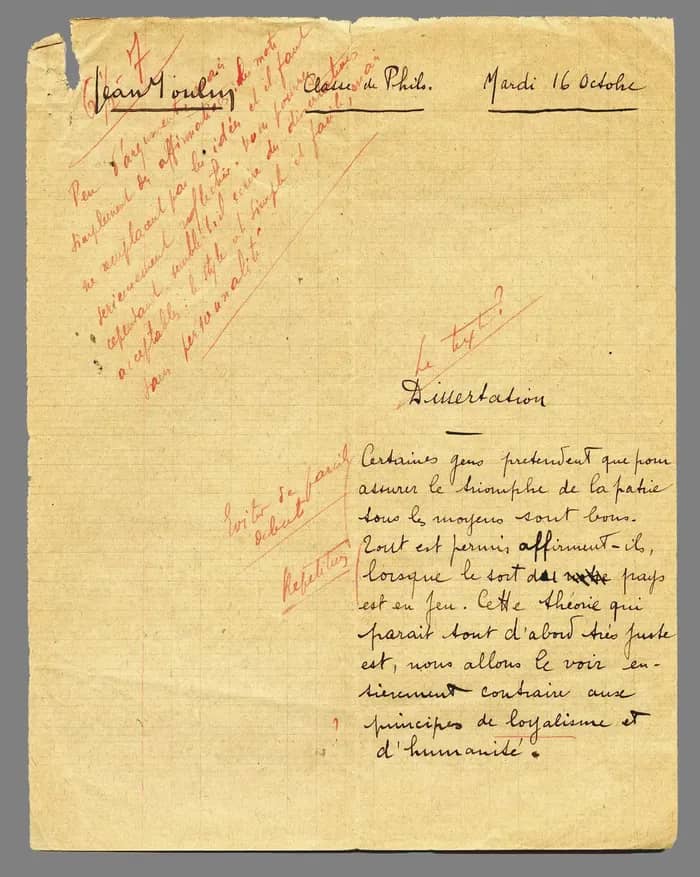 Jean Moulin Classe de Philo. Mardi 16 Octobre
7
Peu d'arguments, mais
simplement des affirmations. Les mots
ne remplacent pas les idées et il faut
sérieusement réfléchir. Vous pouvez
cependant semble-t-il écrire des dissertations
acceptables: le style est simple et facile, mais
sans personnalité.
Le texte?
Dissertation
Eviter de pareils
débuts
Répétition
Certaines gens pretendent que pour
assurer le triomphe de la patrie
tous les moyens sont bons.
Tout est permis affirment-ils,
lorsque le sort du pays
est en jeu. Cette théorie qui
parait tout d'abord très juste
est, nous allons le voir en-
tièrement contraire aux
? principes de loyalisme et
d'humanité.